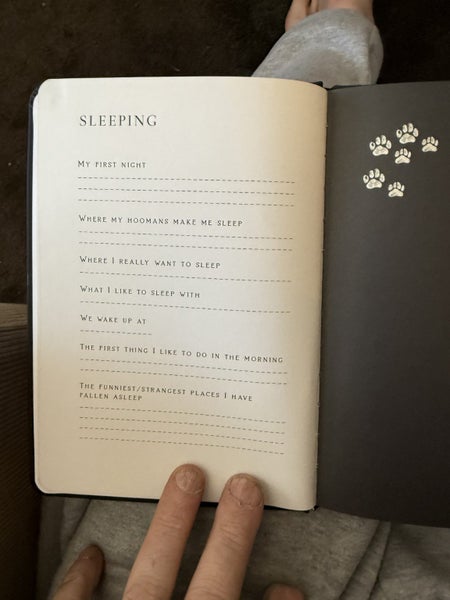 SLEEPING
MY FIRST NIGHT
WHERE MY HOOMANS MAKE ME SLEEP
WHERE I REALLY WANT TO SLEEP
WHAT I LIKE TO SLEEP WITH
WE WAKE UP AT
THE FIRST THING I LIKE TO DO IN THE MORNING
THE FUNNIEST/STRANGEST PLACES I HAVE
FALLEN ASLEEP